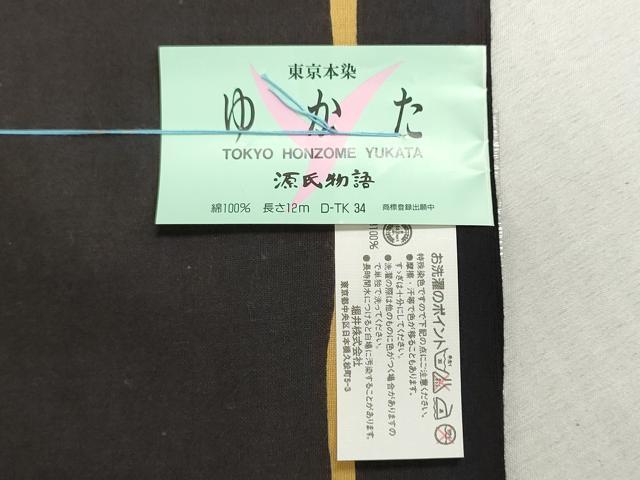 東京本染
ゆかた
TOKYO HONZOME YUKATA
源氏物語
綿100% 長さ12m D-TK 34 商標登録出願中
100%
お洗濯のポイント
特殊染色ですので下記の点にご注意ください。
●摩擦・汗等で色が移ることもあります。
すゝぎは十分にしてください。
●洗濯の際は他のものに色がつく場合がありますの
で単独で洗ってください。
●長時間水につけると白場に汚染することがあります。
堀井株式会社
東京都中央区日本橋久松町5-3